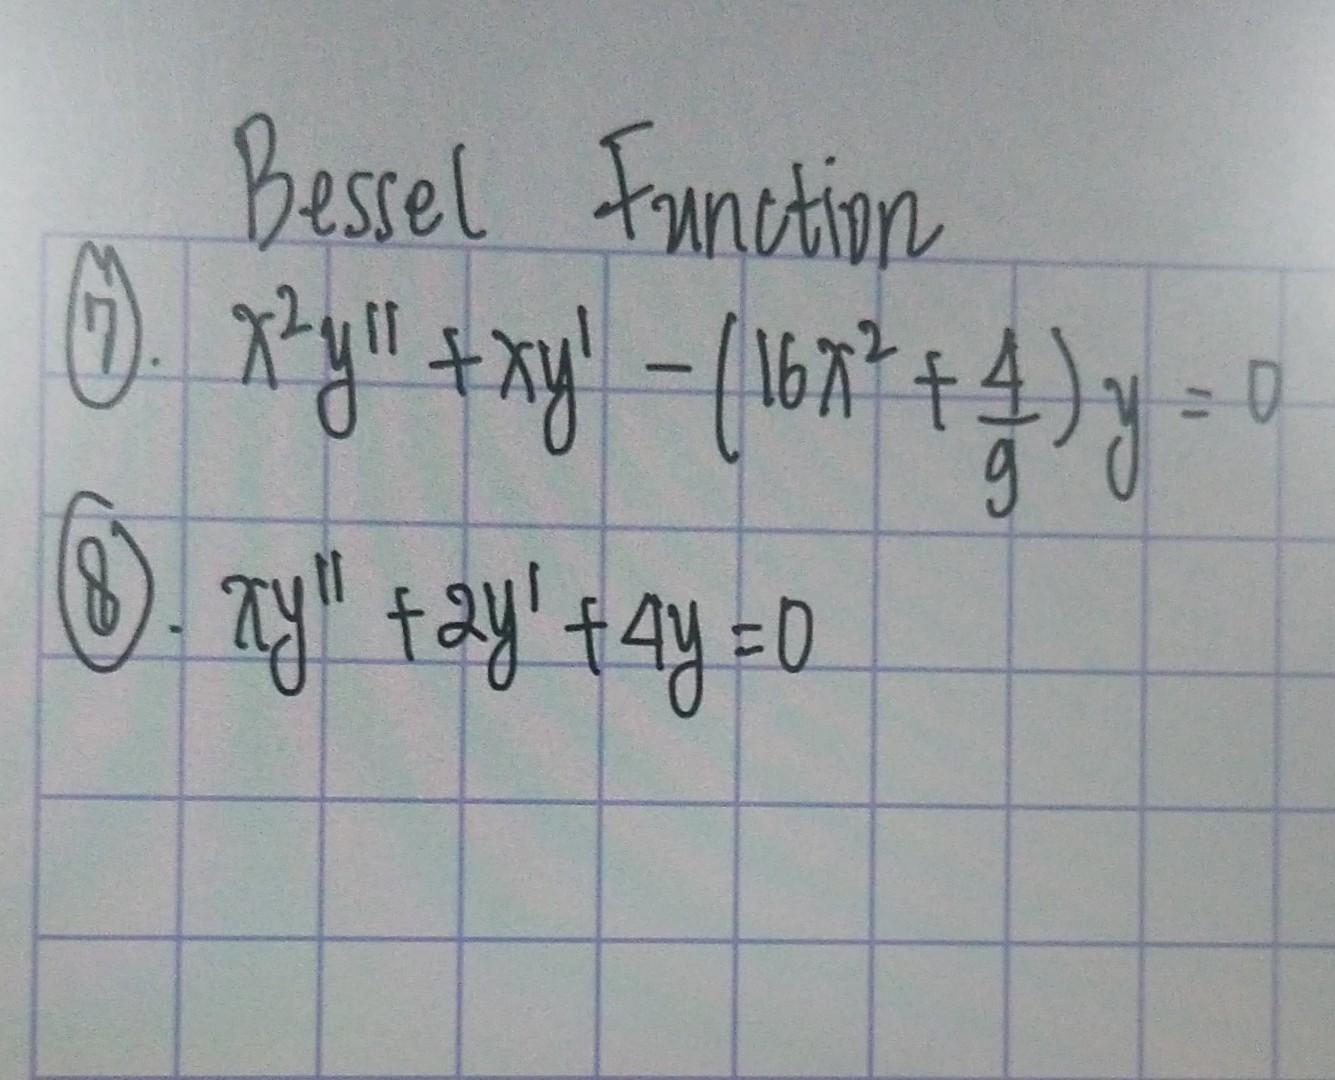 Bessel Function
⑦. x²y'' + xy' - (16x² + 4/9)y = 0
⑧. xy'' + 2y' + 4y = 0